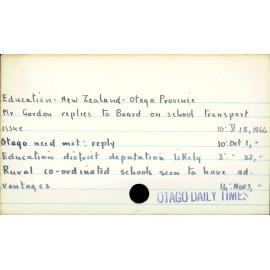 Education - New Zealand - Otago Province
Mr. Gordon replies to Board on school transport
issue 10: Jl 18, 1966
Otago need met: reply 10: Oct 1, "
Education district deputation likely 3: " 22, "
Rural co-ordinated schools seen to have ad-
vantages 14: Nov 3, "
OTAGO DAILY TIMES